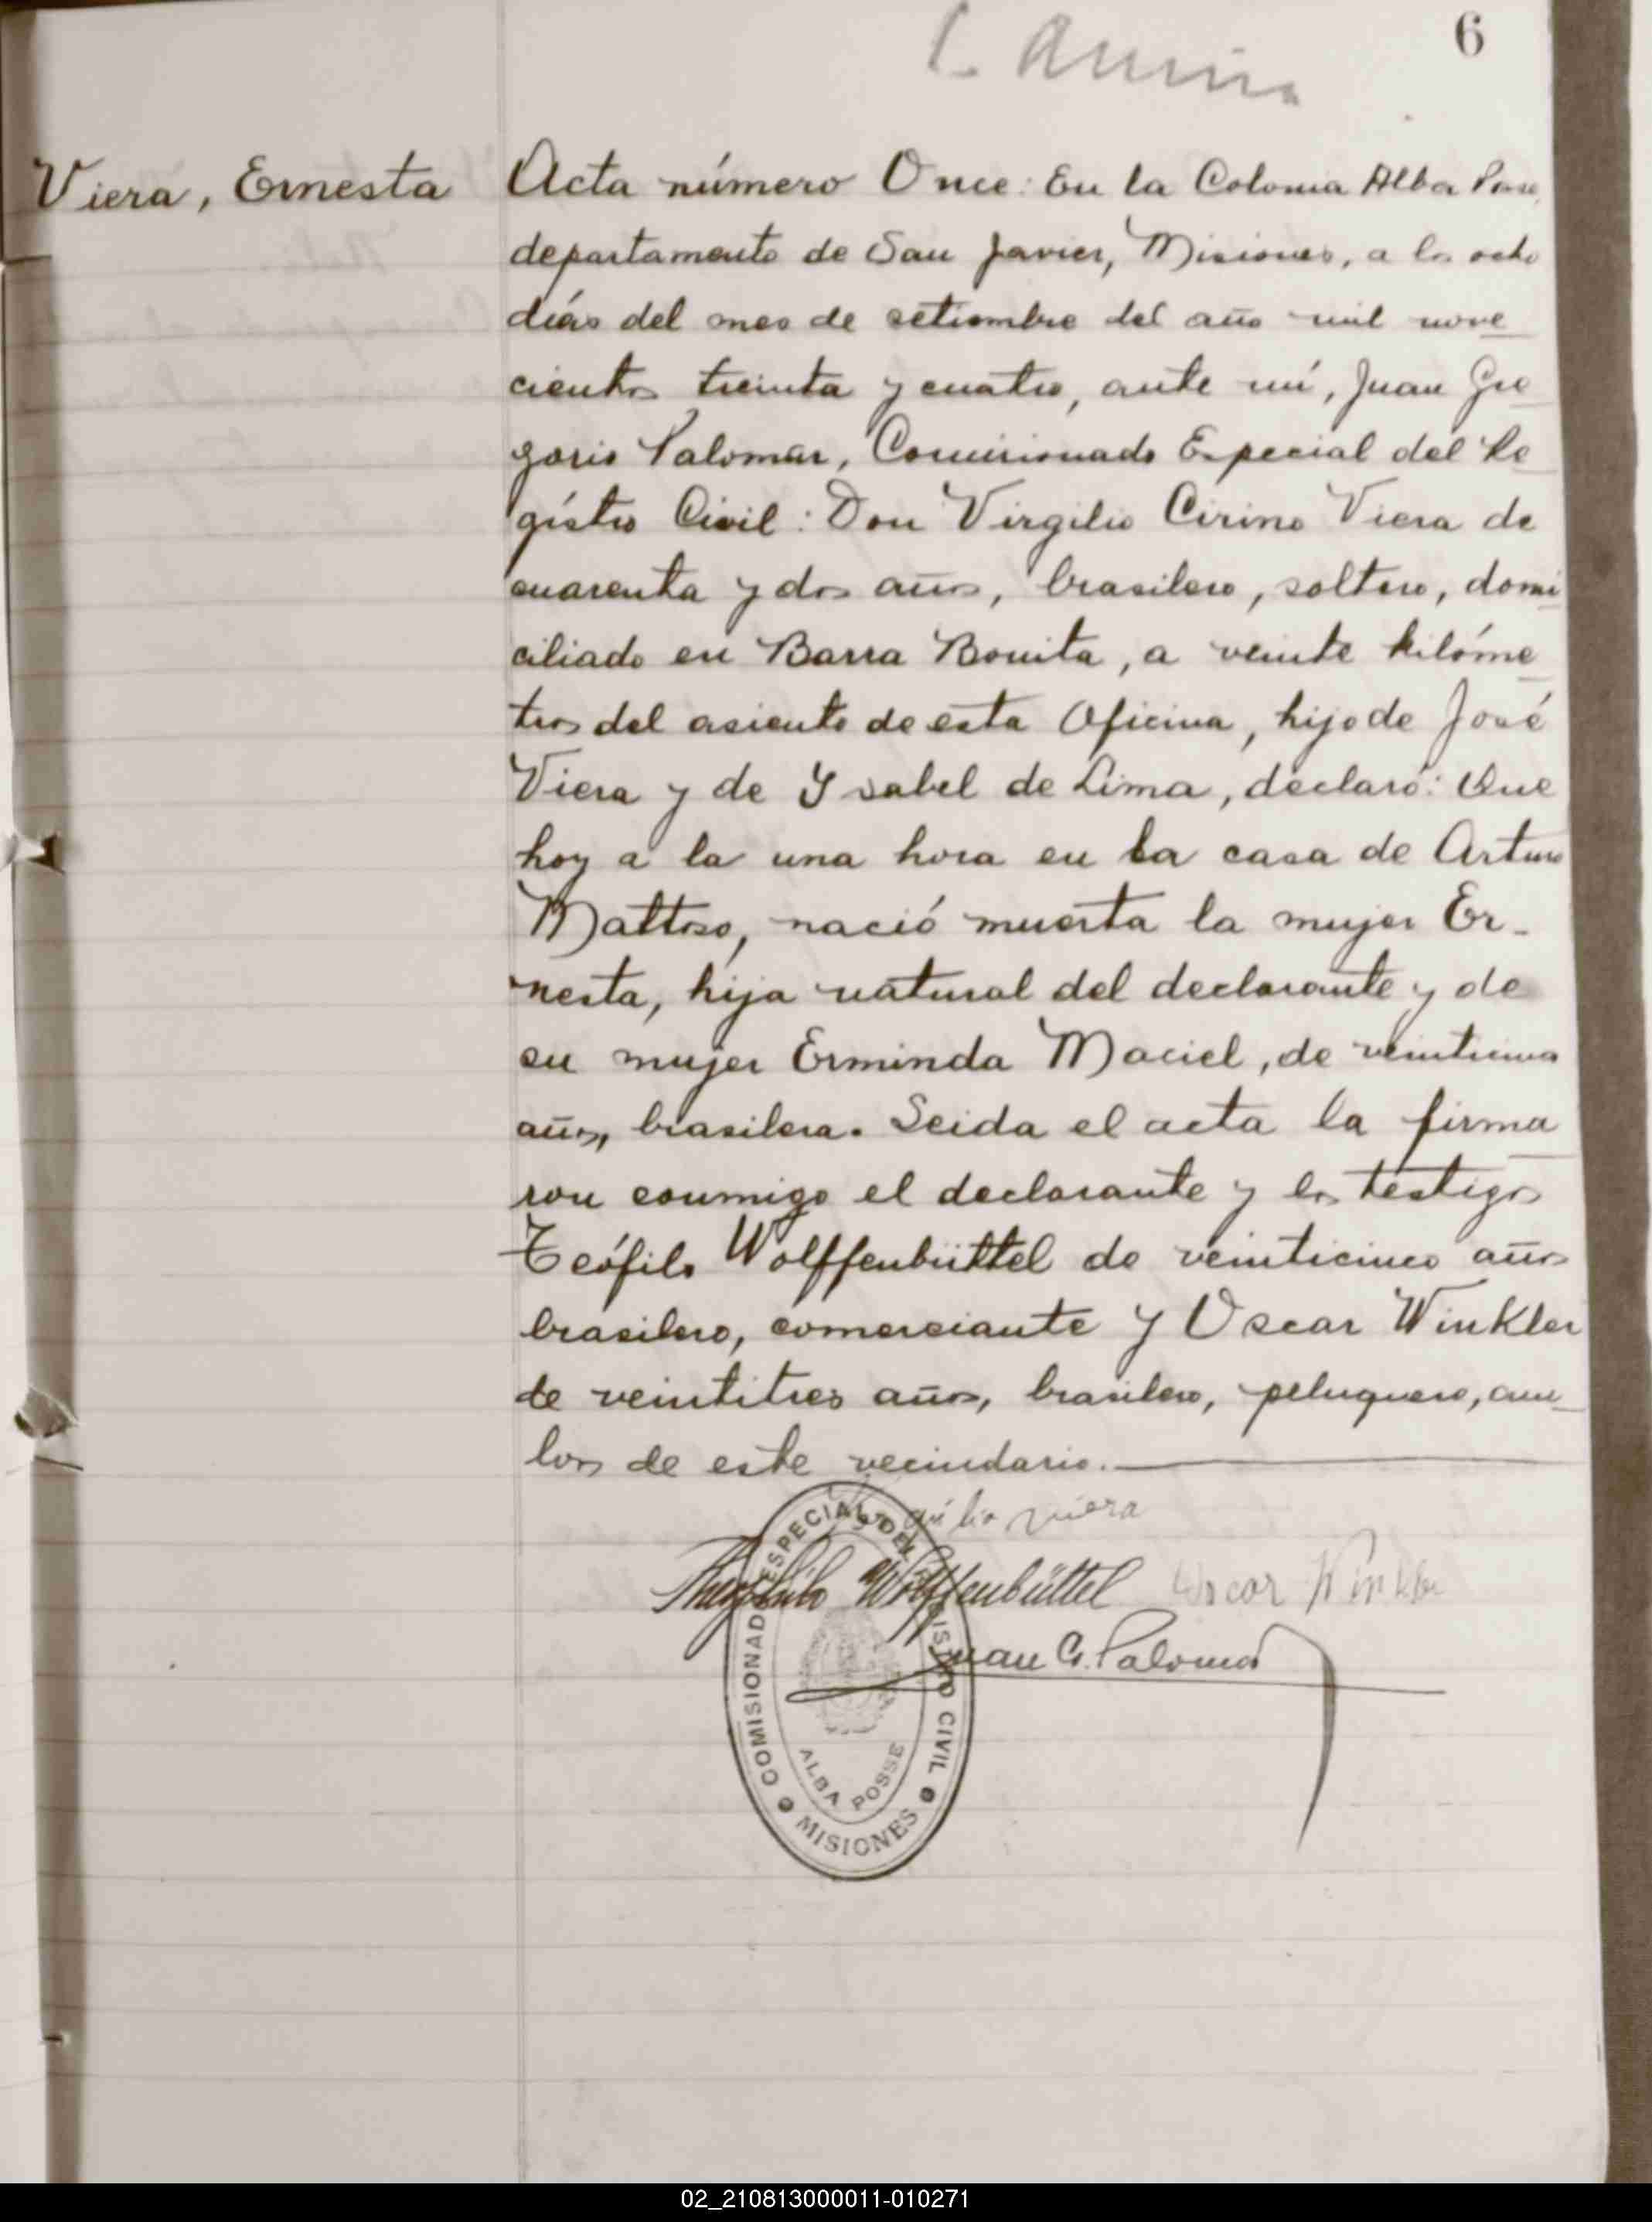 6
Viera, Ernesta
Acta número Once: En la Colonia Alba Posse,
departamento de San Javier, Misiones, a los ocho
días del mes de setiembre del año mil nove
cientos treinta y cuatro, ante mí, Juan Gre
gorio Palomar, Comisionado Especial del Re
gistro Civil: Don Virgilio Cirino Viera de
cuarenta y dos años, brasilero, soltero, domi
ciliado en Barra Bonita, a veinte kilóme
tros del asiento de esta Oficina, hijo de José
Viera y de Ysabel de Lima, declaró: Que
hoy a la una hora en la casa de Arturo
Mattoso, nació muerta la mujer Er-
nesta, hija natural del declarante y de
su mujer Erminda Maciel, de
años, brasilera. Leida el acta la firma
ron conmigo el declarante y los testigos
Teófilo Wolffenbüttel de veinticinco años
brasilero, comerciante y Oscar Winkler
de veintitres años, brasilero, peluquero, am
bos de este vecindario.
Virgilio Viera
Theophilo Wolffenbüttel Oscar Winkler
Juan G. Palomar
COMISIONADO ESPECIAL DEL REGISTRO CIVIL
ALBA POSSE
MISIONES
02_210813000011-010271